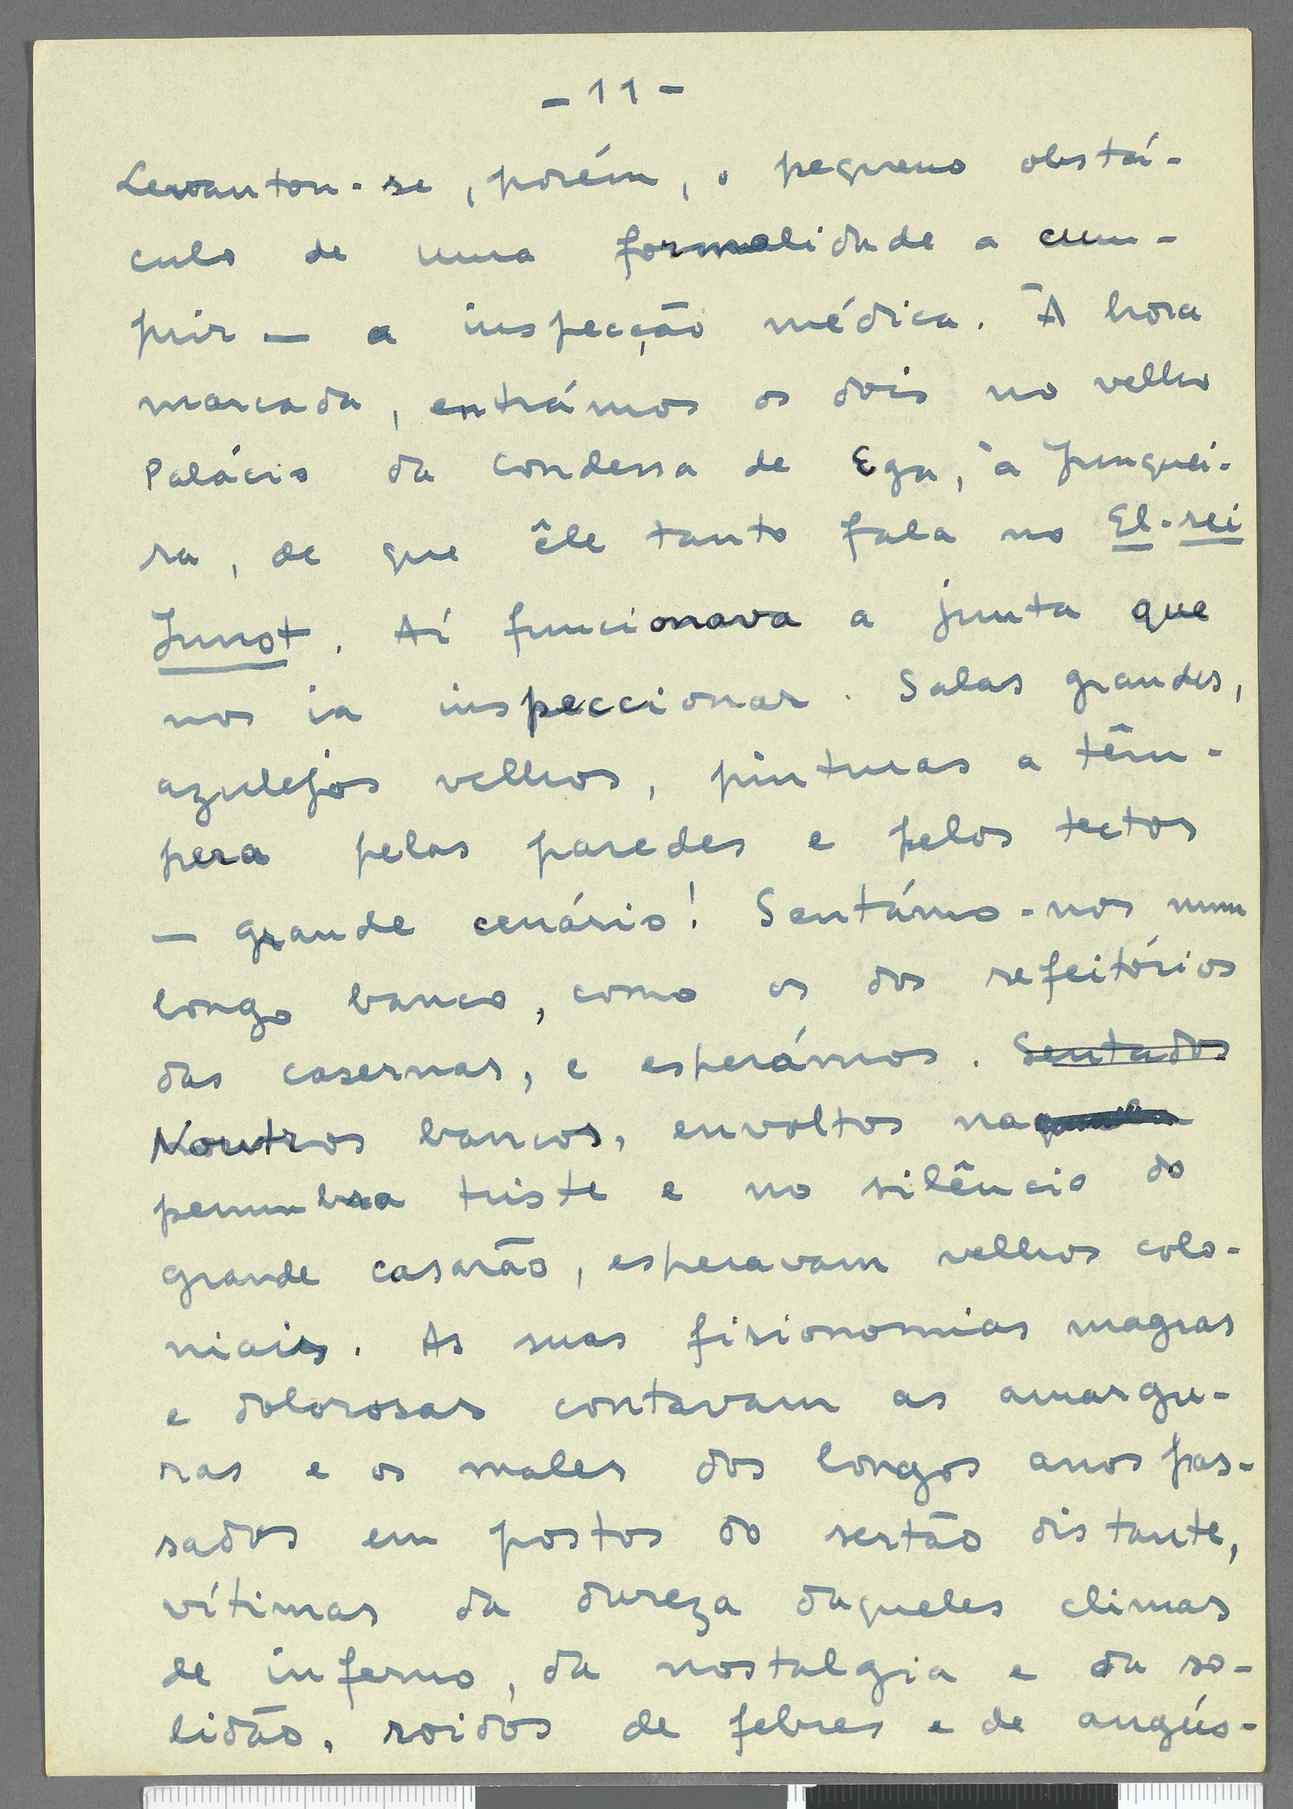 - 11 -
Levantou-se, porém, o pequeno obstá-
culo de uma formalidade a cum-
prir — a inspecção médica. À hora
marcada, entrámos os dois no velho
Palácio da Condessa de Ega, à Junquei-
ra, de que êle tanto fala no El-rei
Junot. Aí funcionava a junta que
nos ia inspeccionar. Salas grandes,
azulejos velhos, pinturas a têm-
pera pelas paredes e pelos tectos
— grande cenário! Sentámo-nos num
longo banco, como os dos refeitórios
das casernas, e esperámos. Sentados
Noutros bancos, envoltos na
penumbra triste e no silêncio do
grande casarão, esperavam velhos colo-
niais. As suas fisionomias magras
e dolorosas contavam as amargu-
ras e os males dos longos anos pas-
sados em postos do sertão distante,
vítimas da dureza daqueles climas
de inferno, da nostalgia e da so-
lidão, roidos de febres e de angús-